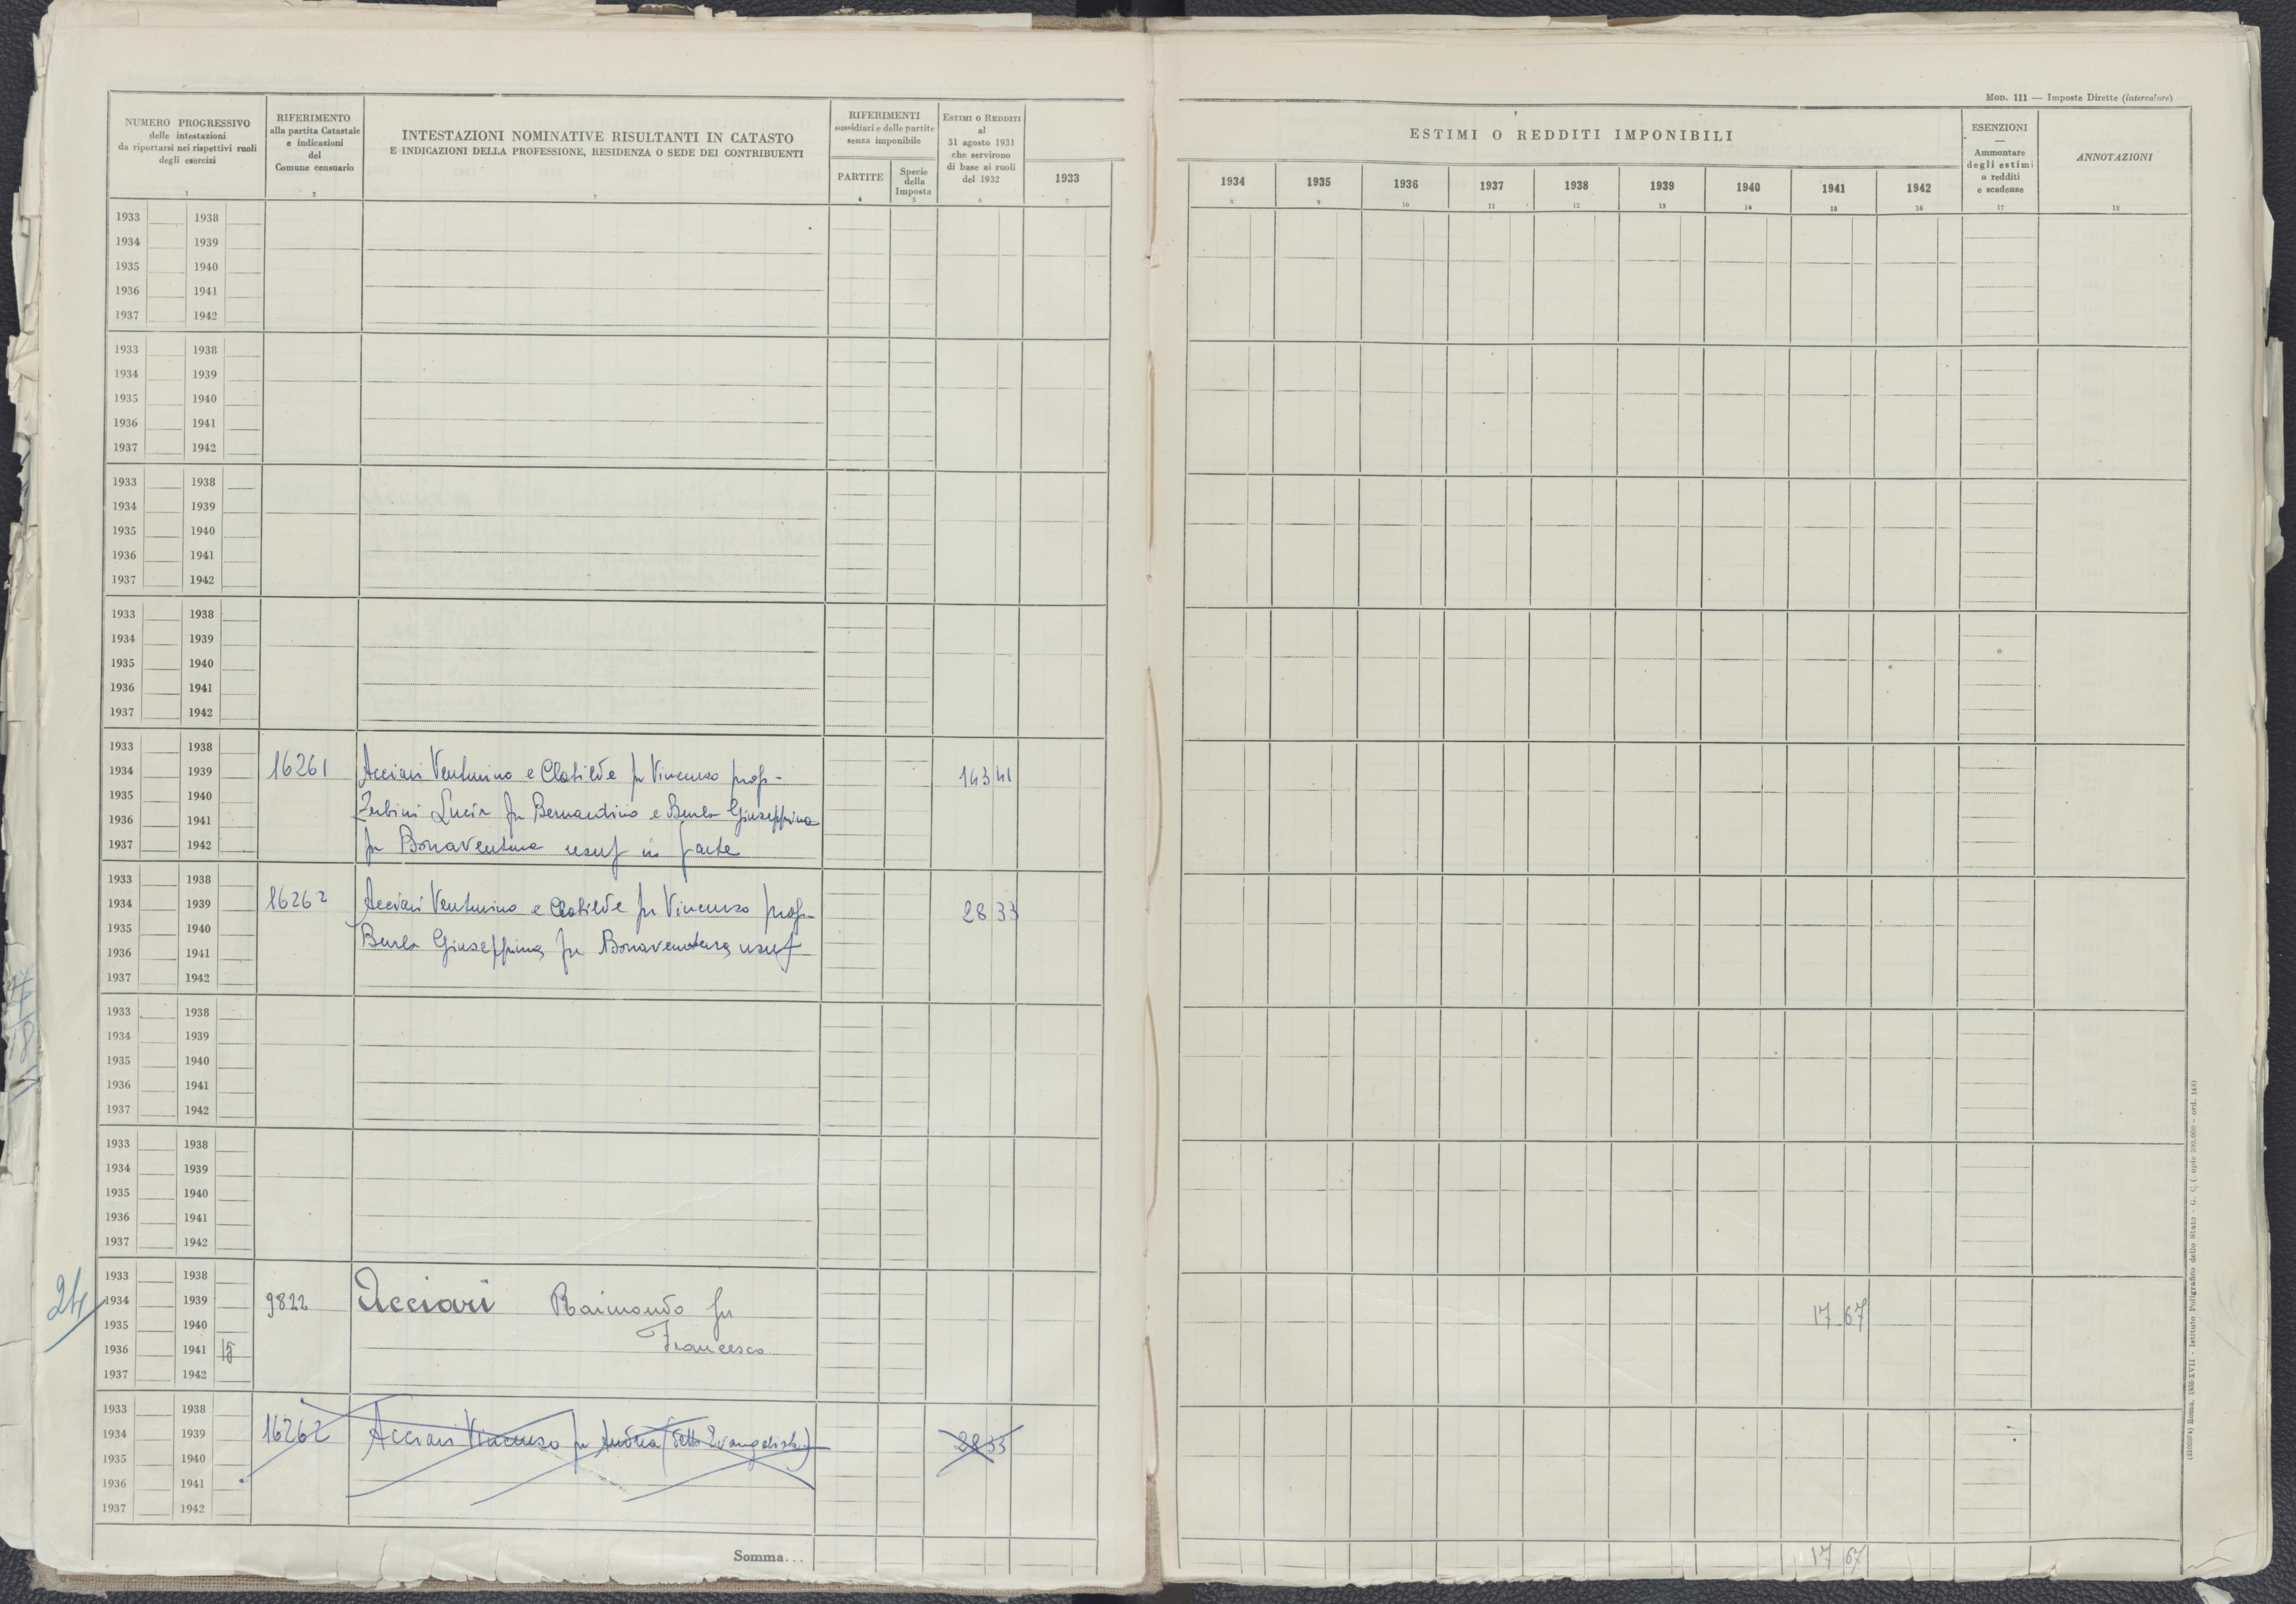 MOD. 111 — Imposte Dirette (intercalare)
NUMERO PROGRESSIVO
delle intestazioni
da riportarsi nei rispettivi ruoli
degli esercizi
1
RIFERIMENTO
alla partita Catastale
e indicazioni
del
Comune censuario
2
INTESTAZIONI NOMINATIVE RISULTANTI IN CATASTO
E INDICAZIONI DELLA PROFESSIONE, RESIDENZA O SEDE DEI CONTRIBUENTI
3
RIFERIMENTI
sussidiari e delle partite
senza imponibile
PARTITE
4
Specie
della
Imposta
5
ESTIMI O REDDITI
al
31 agosto 1931
che servirono
di base ai ruoli
del 1932
6
1933
7
ESTIMI O REDDITI IMPONIBILI
1934 1935 1936 1937 1938 1939 1940 1941 1942
8 9 10 11 12 13 14 15 16
ESENZIONI
—
Ammontare
degli estimi
o redditi
e scadenze
17
ANNOTAZIONI
18
1933 1938
1934 1939
1935 1940
1936 1941
1937 1942
1933 1938
1934 1939
1935 1940
1936 1941
1937 1942
1933 1938
1934 1939
1935 1940
1936 1941
1937 1942
1933 1938
1934 1939
1935 1940
1936 1941
1937 1942
1933 1938
1934 1939 16261 Acciari Venturino e Clotilde fu Vincenzo prop- 143 41
1935 1940 Zubini Lucia fu Bernardino e Burla Giuseppina
1936 1941 fu Bonaventura usuf in parte
1937 1942
1933 1938
1934 1939 16262 Acciari Venturino e Clotilde fu Vincenzo prop- 28 33
1935 1940 Burla Giuseppina fu Bonaventura usuf
1936 1941
1937 1942
1933 1938
1934 1939
1935 1940
1936 1941
1937 1942
1933 1938
1934 1939
1935 1940
1936 1941
1937 1942
1933 1938
24 1934 1939 9822 Acciari Raimondo fu 17 67
1935 1940 Francesco
1936 1941 15
1937 1942
1933 1938
1934 1939 16262 Acciari Vincenzo fu Andrea (detto Evangelista) 28 33
1935 1940
1936 1941
1937 1942
Somma... 17 67